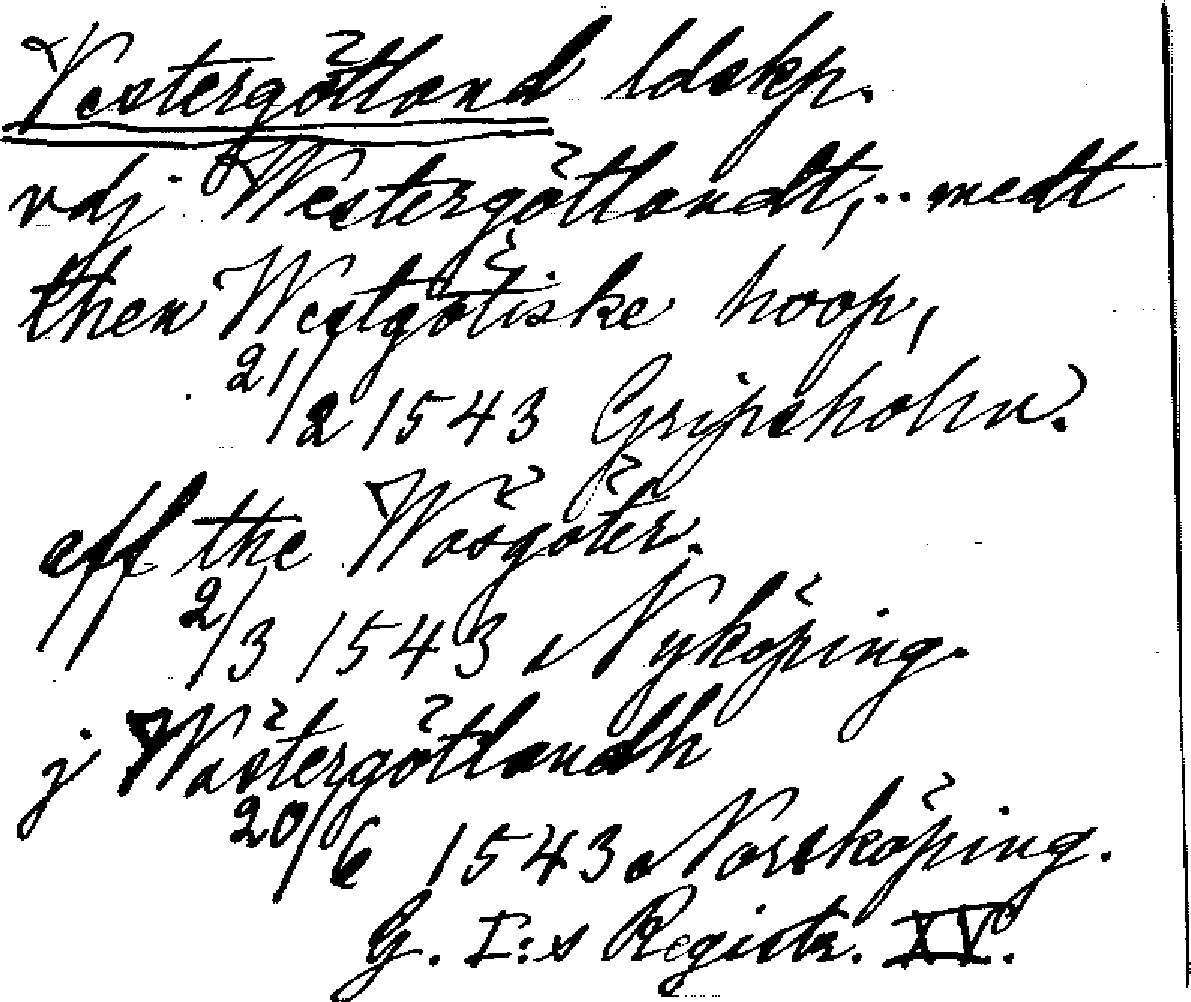 Vestergötland ldskp.
vdj Westergötlandt,.. medt
then Westgötiske hoop,
21/2 1543 Gripsholm.
aff the Wäsgöter.
2/3 1543 Nyköping.
j Wästergötlandh
20/6 1543 Norsköping.
G. I:s Registr. XV.